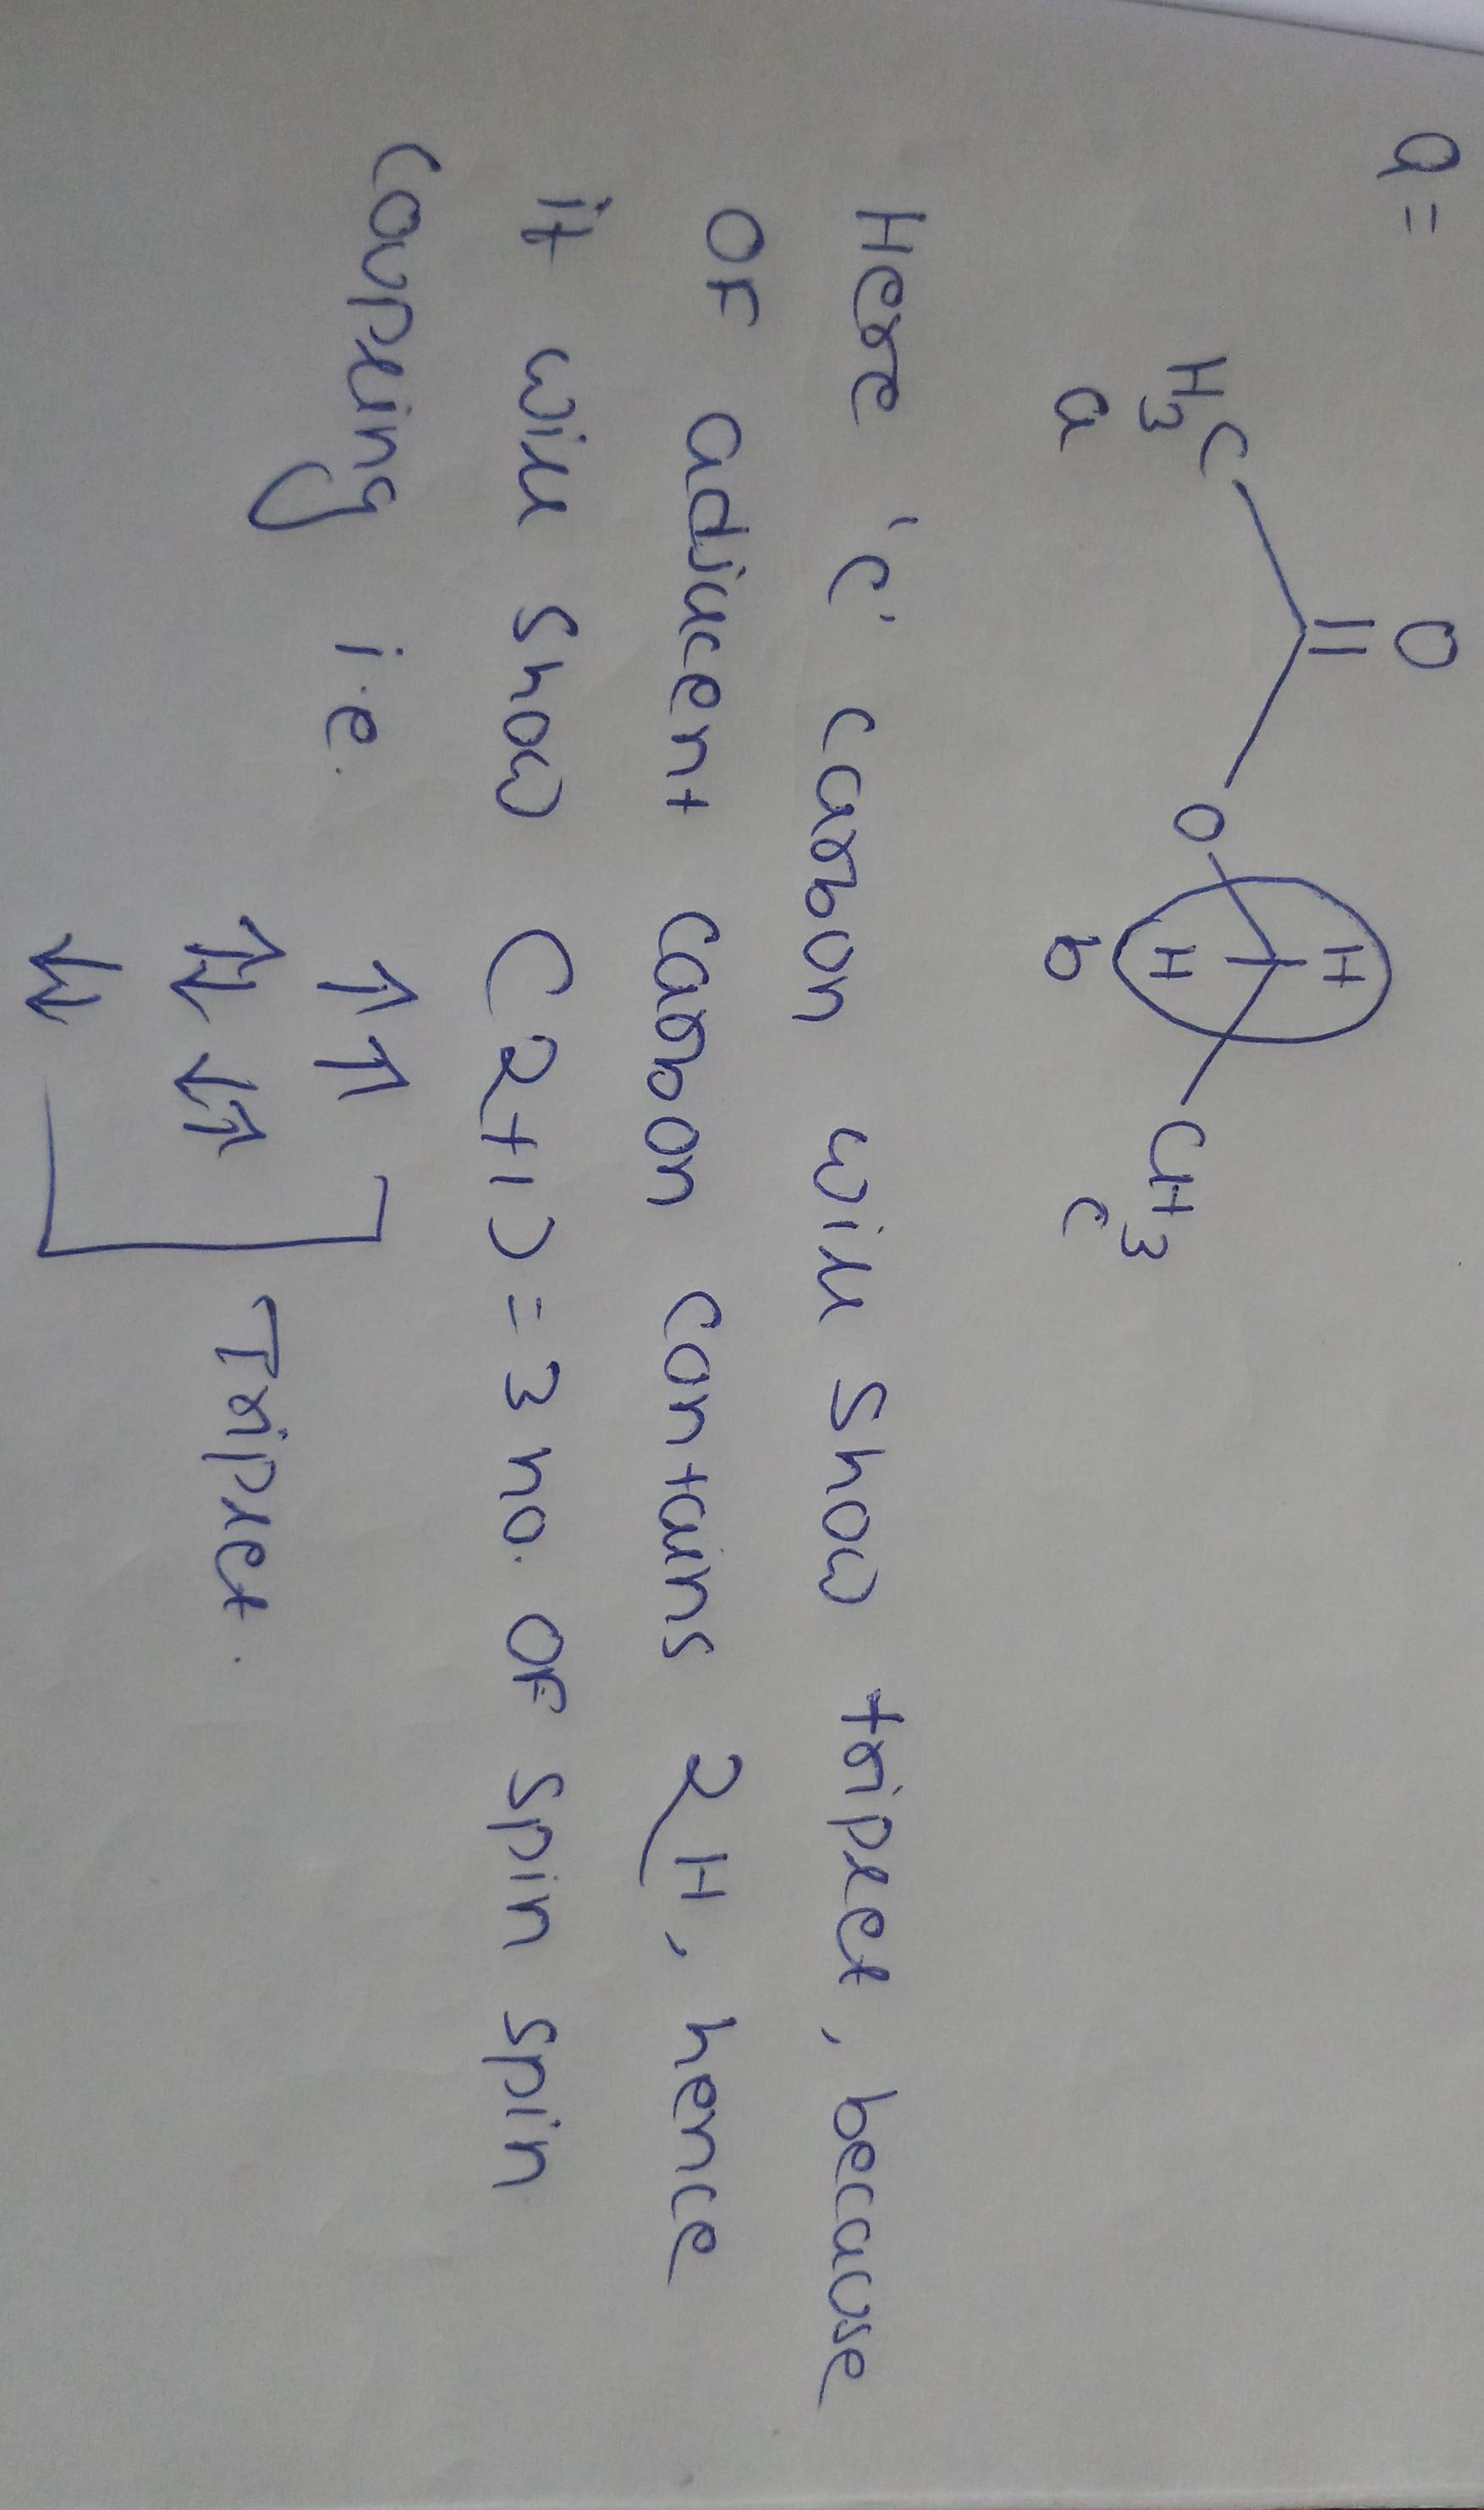 Q =
O
H3C O H H CH3
a b c
Here 'c' carbon will show triplet, because
of adjucent carbon contains 2H, hence
it will show (2+1) = 3 no. of spin spin
coupling i.e. ↑↑
↑↓ ↓↑ Triplet.
↓↓